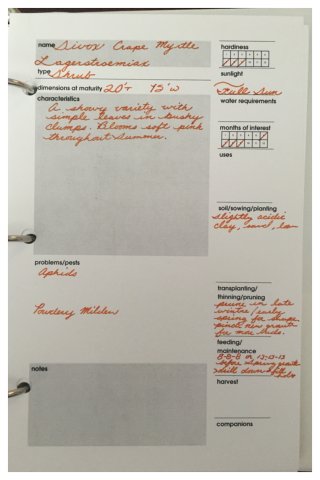 name Sioux Crape Myrtle
Lagerstroemiax
type Shrub
dimensions at maturity 20'T 15'W
characteristics
A showy variety with
simple leaves in bushy
clumps. Blooms soft pink
throughout summer.
problems/pests
Aphids
Powdery Mildew
notes
hardiness
sunlight
Full Sun
water requirements
months of interest
uses
soil/sowing/planting
slightly acidic
clay, sand, loam
transplanting/
thinning/pruning
prune in late
winter/early
spring for shape.
pinch new growth
for more buds.
feeding/
maintenance
8-8-8 or 13-13-13
before spring growth
harvest
companions